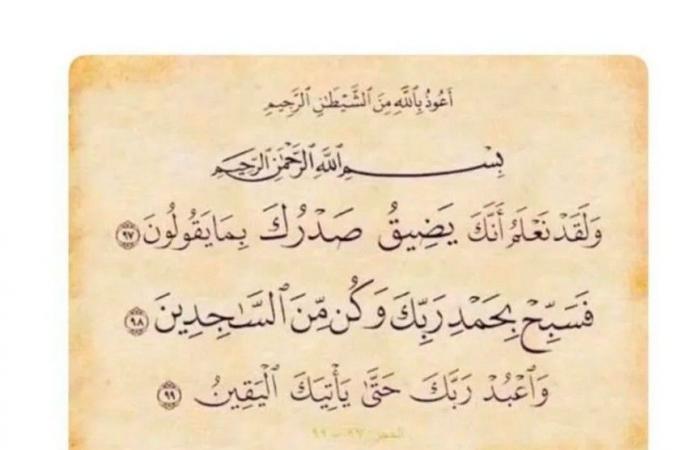 أَعُوذُ بِٱللَّهِ مِنَ ٱلشَّيْطَٰنِ ٱلرَّجِيمِ
بِسْمِ ٱللَّهِ ٱلرَّحْمَٰنِ ٱلرَّحِيمِ
وَلَقَدْ نَعْلَمُ أَنَّكَ يَضِيقُ صَدْرُكَ بِمَا يَقُولُونَ ٩٧
فَسَبِّحْ بِحَمْدِ رَبِّكَ وَكُن مِّنَ ٱلسَّٰجِدِينَ ٩٨
وَٱعْبُدْ رَبَّكَ حَتَّىٰ يَأْتِيَكَ ٱلْيَقِينُ ٩٩
الحجر: ٩٧ - ٩٩